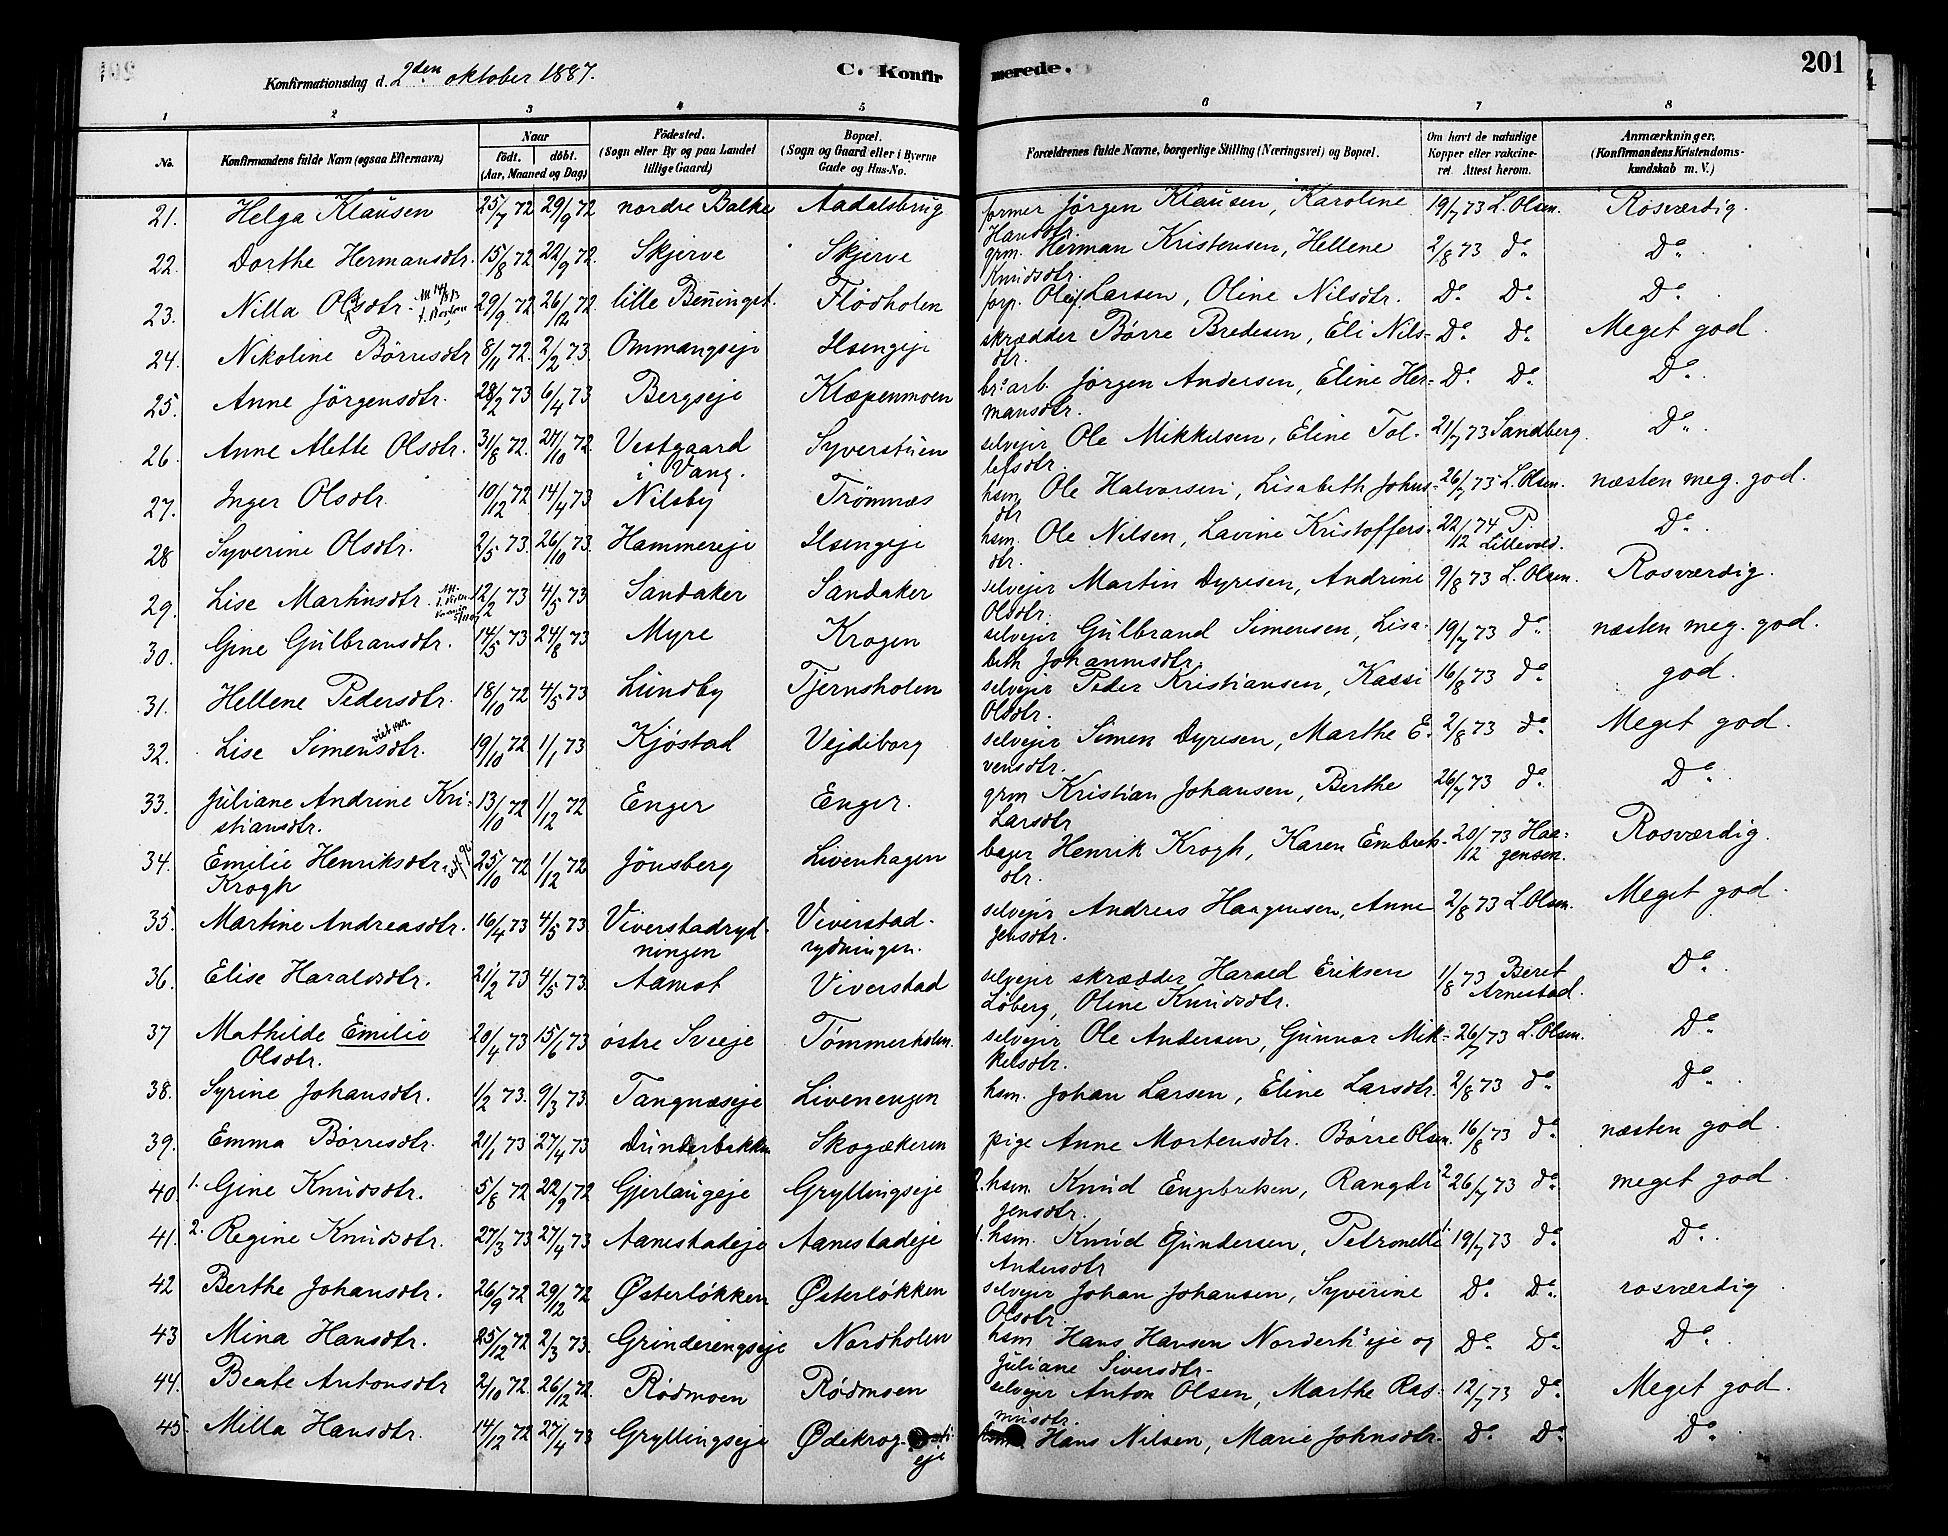 Konfirmationsdag d. 2den oktober 1887. C. Konfirmerede. 201
1 2 3 4 5 6 7 8
No. Konfirmandens fulde Navn (ogsaa Efternavn) Naar födt. döbt. (Aar, Maaned og Dag) Födested. (Sogn eller By og paa Landet tillige Gaard) Bopæl. (Sogn og Gaard eller i Byerne Gade og Hus-No. Forældrenes fulde Navne, borgerlige Stilling (Næringsvei) og Bopæl. Om havt de naturlige Kopper eller vakcineret. Attest herom. Anmærkninger. (Konfirmandens Kristendomskundskab m. V.)
21. Helga Klausen 25/7 72 29/9 72 nordre Balke Aadalsbrug former Jørgen Klausen, Karoline Hansdtr. 19/7 73 L. Olsen. Rosværdig.
22. Dorthe Hermansdtr. 15/8 72 22/9 72. Skjerve Skjerve grm. Herman Kristensen, Hellene Knudsdtr. 2/8 73 do. Do.
23. Nilla Olsdtr. 29/9 72 26/12 72 lille Benningst. Flødholen forp. Ole Larsen, Oline Nilsdtr. Do. Do. Do.
24. Nikoline Börresdtr 8/11 72. 2/2 73. Ommangseje Ilsengeje skrædder Børre Bredesen, Eli Nilsdtr. Do. Do. Meget god.
25. Anne Jörgensdtr. 28/2 73 6/4 73 Bergseje Klæpenmoen br. arb. Jørgen Andersen, Eline Hermansdtr. Do. Do. Do.
26. Anne Alette Olsdtr. 31/8 72. 27/10 72. Vestgaard i Vang. Syverstuen selvejer Ole Mikkelsen, Eline Tollefsdtr. 21/7 73 Sandberg. Do.
27. Inger Olsdtr. 10/12 72 14/4 73 Nilsby Trömnæs hsm. Ole Halvorsen, Lisabeth Johnsdtr 26/7 73 L. Olsen. næsten meg. god.
28 Syverine Olsdtr. 2/5 73. 26/10 73. Hammereje Ilsengeje hsm. Ole Nilsen, Lavine Kristoffersdtr. 22/12 74 P. Lillevold. Do.
29. Lise Martinsdtr. 12/2 73 4/5 73 Sandaker Sandaker selvejer Martin Dyresen, Andrine Olsdtr. 9/8 73 L. Olsen. Rosværdig.
30. Gine Gulbransdtr. 14/5 73 24/8 73 Myre Krogen selvejer Gulbrand Simensen, Lisabeth Johannesdtr. 19/7 73 do. næsten meg. god.
31. Hellene Pedersdtr. 18/10 72 4/5 73 Lundby Tjernsholen selvejer Peder Kristiansen, Kassi Olsdtr. 16/8 73 do. god.
32. Lise Simensdtr. 19/10 72 1/1 73 Kjøstad Vejdiborg selvejer Simen Dyresen, Marthe Evensdtr. 2/8 73 do. Meget god.
33. Juliane Andrine Kristiansdtr. 13/10 72 1/12 72 Enger Enger. grm Kristian Johansen, Berthe Larsdtr 26/7 73 do. Do.
34. Emilie Henriksdtr. Krogh 25/10 72 1/12 72 Jönsberg Livenhagen bager Henrik Krogh, Karen Embretsdtr. 20/12 73 Haagensen. Rosværdig.
35. Martine Andreasdtr. 16/4 73 4/5 73. Viverstadrydningen Viverstadrydningen. selvejer Andreas Haagensen, Anne Jensdtr. 2/8 73 L. Olsen. Meget god.
36. Elise Haraldsdtr. 21/2 73 4/5 73. Aamot Viverstad selvejer skrædder Harald Eriksen Løberg, Oline Knudsdtr. 1/8 73 Beret Arnestad. Do.
37 Mathilde Emilie Olsdtr. 20/4 73 15/6 73 østre Svieje Tømmerholen. selvejer Ole Andersen, Gunnor Mikkelsdtr. 26/7 73 L. Olsen. Do.
38. Syrine Johansdtr. 1/2 73. 9/3 73. Tangnæseje Livenengen hsm. Johan Larsen, Eline Larsdtr. 2/8 73 do. Do.
39. Emma Börresdtr. 21/1 73 27/4 73 Dunderbakken Skogækeren pige Anne Mortensdtr. Børre Olsen. 16/8 73 do. næsten god.
40 1. Gine Knudsdtr. 5/8 72 22/9 72 Gjerlaugeje Gryllingseje 2. hsm. Knud Engebretsen, Rangdi Jensdtr. 2 26/7 73 do. meget god.
41. 2. Regine Knudsdtr. 27/3 73 27/4 73 Aanestadeje Aanestadeje 1. hsm. Knud Gundersen, Petronelle Andersdtr 1. 19/7 73 do. Do.
42 Berthe Johansdtr. 26/9 72 29/12 72 Østerløkken Østerløkken selvejer Johan Johansen, Syverine Olsdtr. Do. Do. rosværdig
43 Mina Hansdtr. 25/12 72 2/3 73. Grinderengseje Nordholen hsm Hans Hansen Norderhseje og Juliane Siversdtr. Do. Do. Do.
44. Beate Antonsdtr 2/10 72. 26/12 72. Rödmoen Rödmoen selvejer Anton Olsen, Marthe Rasmusdtr. 12/7 73 do. Meget god.
45. Milla Hansdtr. 14/12 72 27/4 73 Gryllingseje Ødekrog eje Hans Nilsen, Marie Johnsdtr. Do. Do. Do.